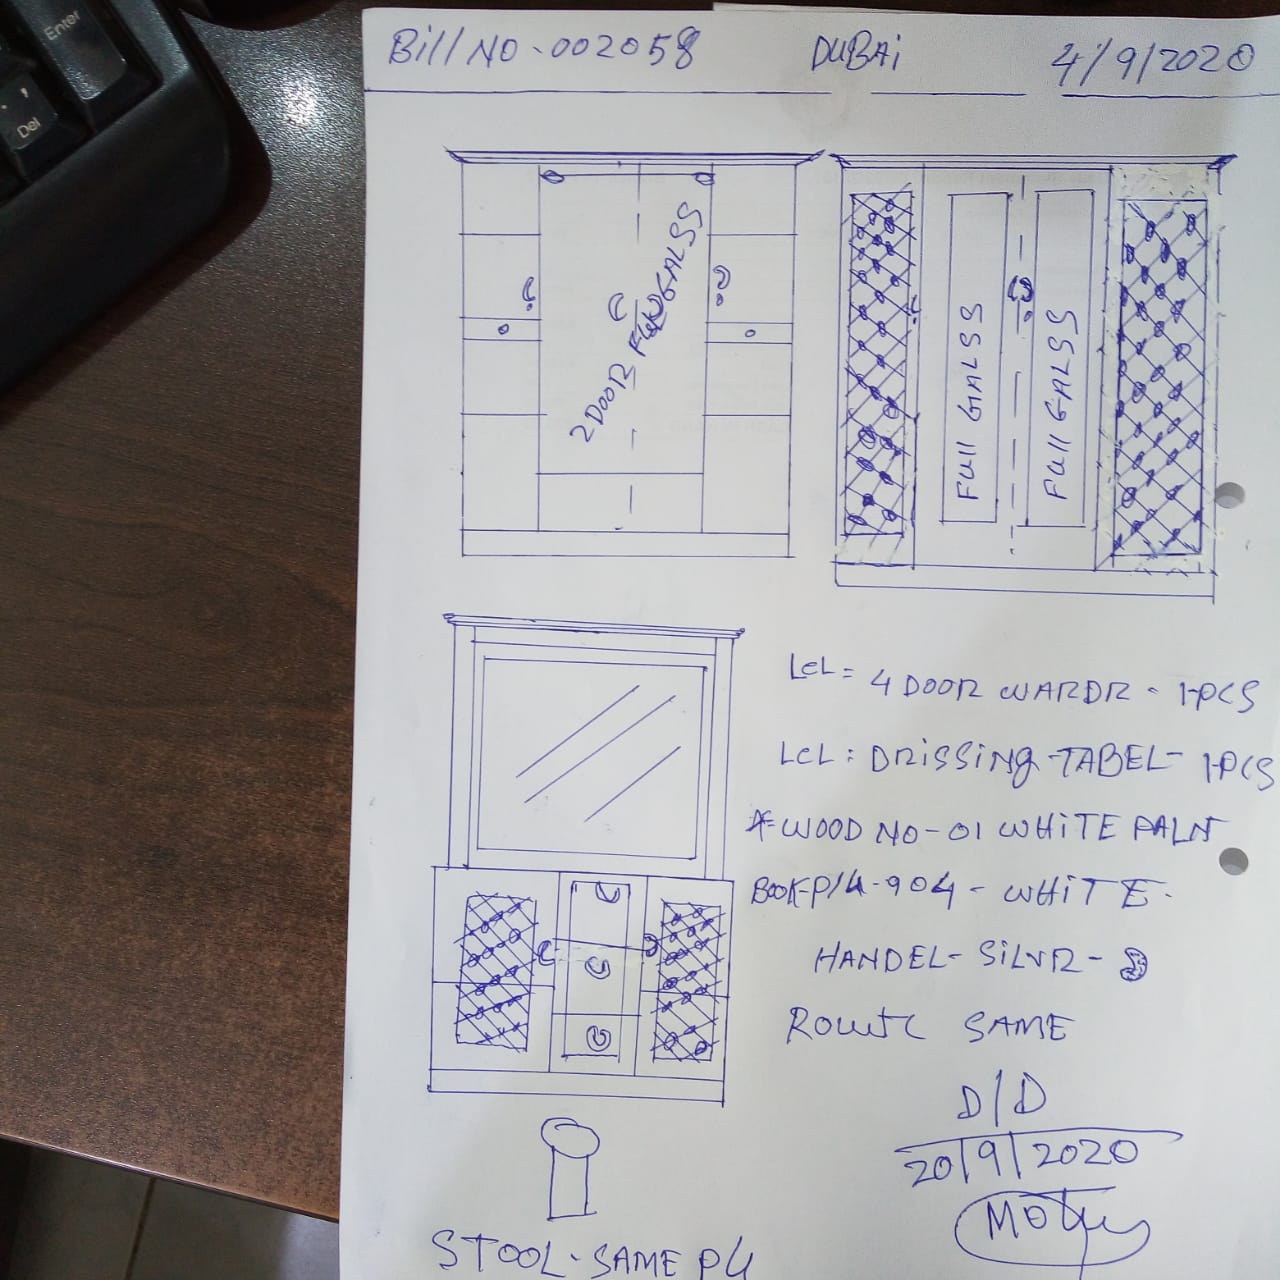 Enter
Del
Bill NO-002058 DUBAi 4/9/2020
2 DOOR FULL GALSS
FUll GALSS
FUll GALSS
LCL = 4 DOOR WARDR - 1-PCS
LCL : DRiSSiNg-TABEL- 1-PCS
WOOD NO-01 WHiTE PALN
BOOK-P/4-904 - WHiTE.
HANDEL- SiLVR-
SAME
D/D
20/9/2020
STOOL-SAME P4